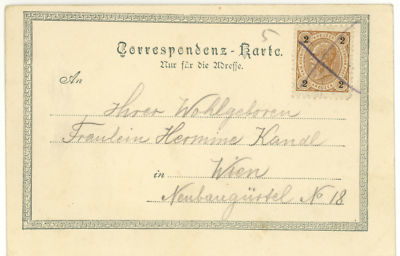 5
Correspondenz-Karte.
Nur für die Adresse.
2 2
2 2
An
Ihrer Wohlgeboren
Fraulein Hermine Kandl
in Wien
Neubaugürtel No 18